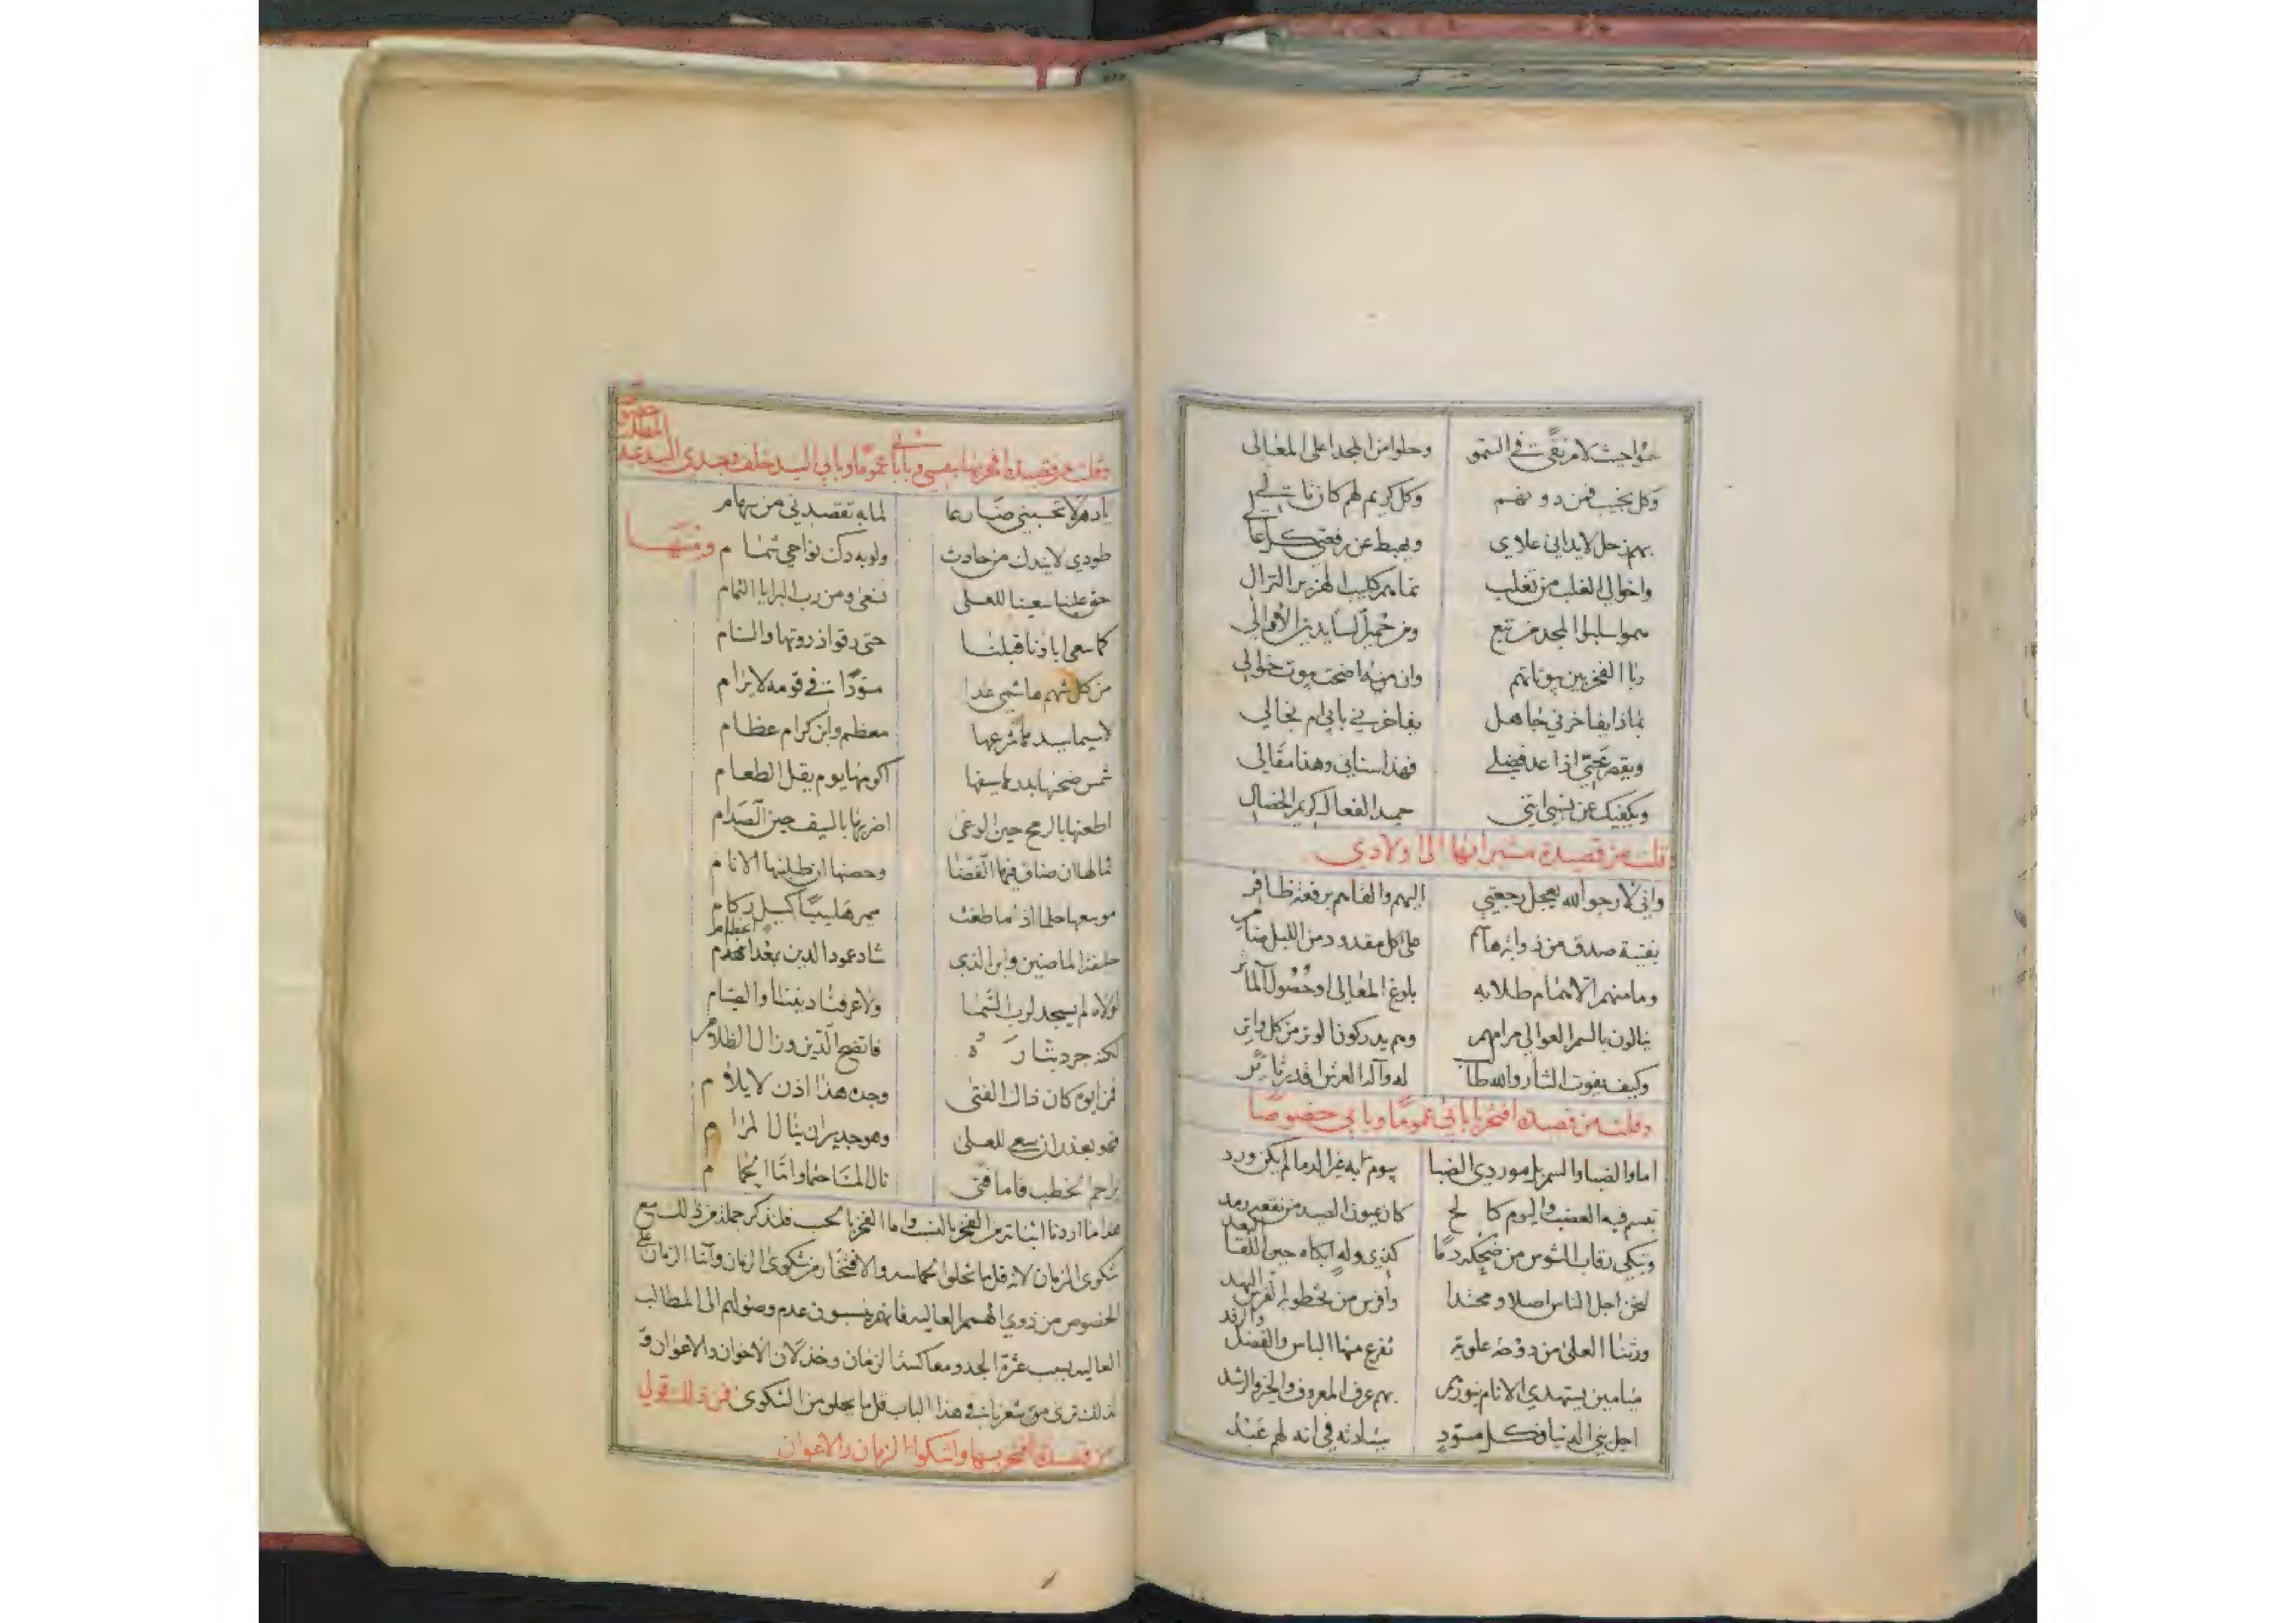 حلوا حيث لا مرتقى في السمو وحلوا من المجد اعلى المعالي
وكل نجيب فمن دونهم وكل كريم لهم كان تالي
بهم زحل لا يداني علاي ويهبط عن رفعتي
واخوالي الغلب من تغلب كليب الهزبر النزال
سموا سلبوا المجد من تبع ومن حمير
ربا الفخر بين بيوتاتهم وان منه اضحت بيوت خوالي
بماذا يفاخرني جاهل يفاخرني بابي ام بخالي
اذا عد فضلي فهذا سنابي وهذا مقالي
ويكفيك عن نسبي انني حميد الفعال كريم الخصال
وقلت من قصيدة مشيرا بها الى اولادي
واني لارجو الله يعجل رجعتي اليهم والقاهم برفعة ظافر
بفتية صدق من ذوابة هاشم على كل مقدود من الليل
وما منهم الا همام طلابه بلوغ المعالي او حصول المآثر
ينالون بالسمر العوالي مرامهم وهم يدركون الوتر من كل واتر
وكيف يفوت الثار والله طالب له وآله العرش اقدر ثائر
وقلت من قصيدة افتخر بابائي عموما وبابي خصوصا
اما والضبا والسمر بل موردي الضبا بيوم به غير الدما لم يكن ورد
تبسم فيه العضب واليوم كالح كان عيون الصيد من نقعه رمد
وتبكي رقاب الشوس من ضحكه دما كذي وله ابكاه حين اللقا البعد
لنحن اجل الناس اصلا ومحتدا وافرس من تخطو به الفرس النهد
ورثنا العلى من دوحة علوية تفرع منها الباس والفضل والرفد
ميامين يستهدي الانام بنورهم بهم عرف المعروف والخير والرشد
اجل بني الدنيا وكل مسود بسادته في انه لهم عبد
وقلت من قصيدة افخر بها بنفسي وبابائي عموما وبابي السيد خلف وجدي السيد عبد المطلب خصوصا
يا دهر لا تحسبني ضارعا لما به تقصدني من سهام
طودي لا يندك من حادث ولو به دكت نواحي شمام ومنها
حق علينا سعينا للعلى نسعى ومن رب البرايا التمام
كما سعى اباونا قبلنا حتى رقوا ذروتها والسنام
من كل شهم هاشمي غدا مسودا في قومه لا يرام
لا سيما سيد معظم وابن كرام عظام
شمس ضحيها بدر اكرمها يوم يقل الطعام
اطعنها بالرمح حين الوغى اضربها بالسيف حين الصدام
ثمالها ان ضاق فيها الفضا وحصنها ان طلبتها الانام
موسعها حلما اذا ما طغت
خليفة الماضين وابن الذي شاد عمود الدين بعد انهدام
لولاه لم يسجد لرب السما ولا عرفنا ديننا والصيام
لكنه جرد بتاره فاتضح الدين وزال الظلام
فمن ابوه كان ذاك الفتى وجده هذا اذن لا يلام
فهو بعذر ان سعى للعلى وهو جدير ان ينال المرام
يزاحم الخطب فاما فتى نال المنا حتما واما الحمام
هذا ما اردنا اثباته من الفخر بالنسب واما الفخر بالحسب فلنذكر جملة من ذلك مع
شكوى الزمان لانه قل ما تخلوا الحماسه والافتخار من شكوى الزمان وابنا الزمان على
الخصوص من ذوي الهمم العاليه فانهم ينسبون عدم وصولهم الى المطالب
العاليه بسبب عثرة الجد ومعاكسة الزمان وخذلان الاخوان والاعوان و
لذلك ترى من شعر في هذا الباب قل ما يخلو من الشكوى فمن ذلك قولي
من قصيدة افتخر بها واشكوا الزمان والاعوان